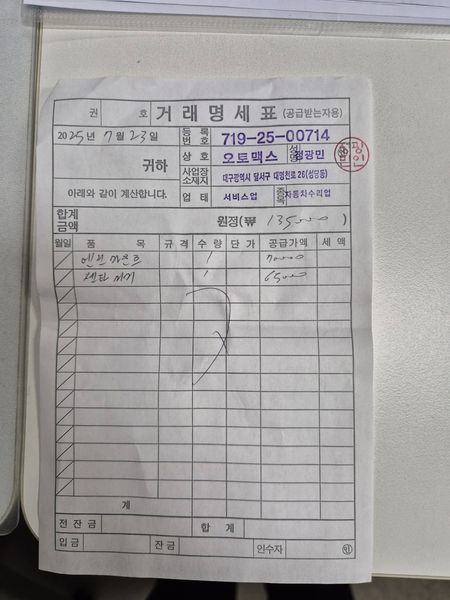 권 호 거래명세표 (공급받는자용)
2025년 7월 23일 등록번호 719-25-00714
귀하 상호 오토맥스 성명 정광민
사업장소재지 대구광역시 달서구 대명천로 26(성당동)
아래와 같이 계산합니다. 업태 서비스업 종목 자동차수리업
합계금액 원정(₩ 135000 )
월일 품 목 규격 수량 단가 공급가액 세액
엔진 마운트 1 70000
1 65000
계
전잔금 합계
입금 잔금 인수자 ㊞